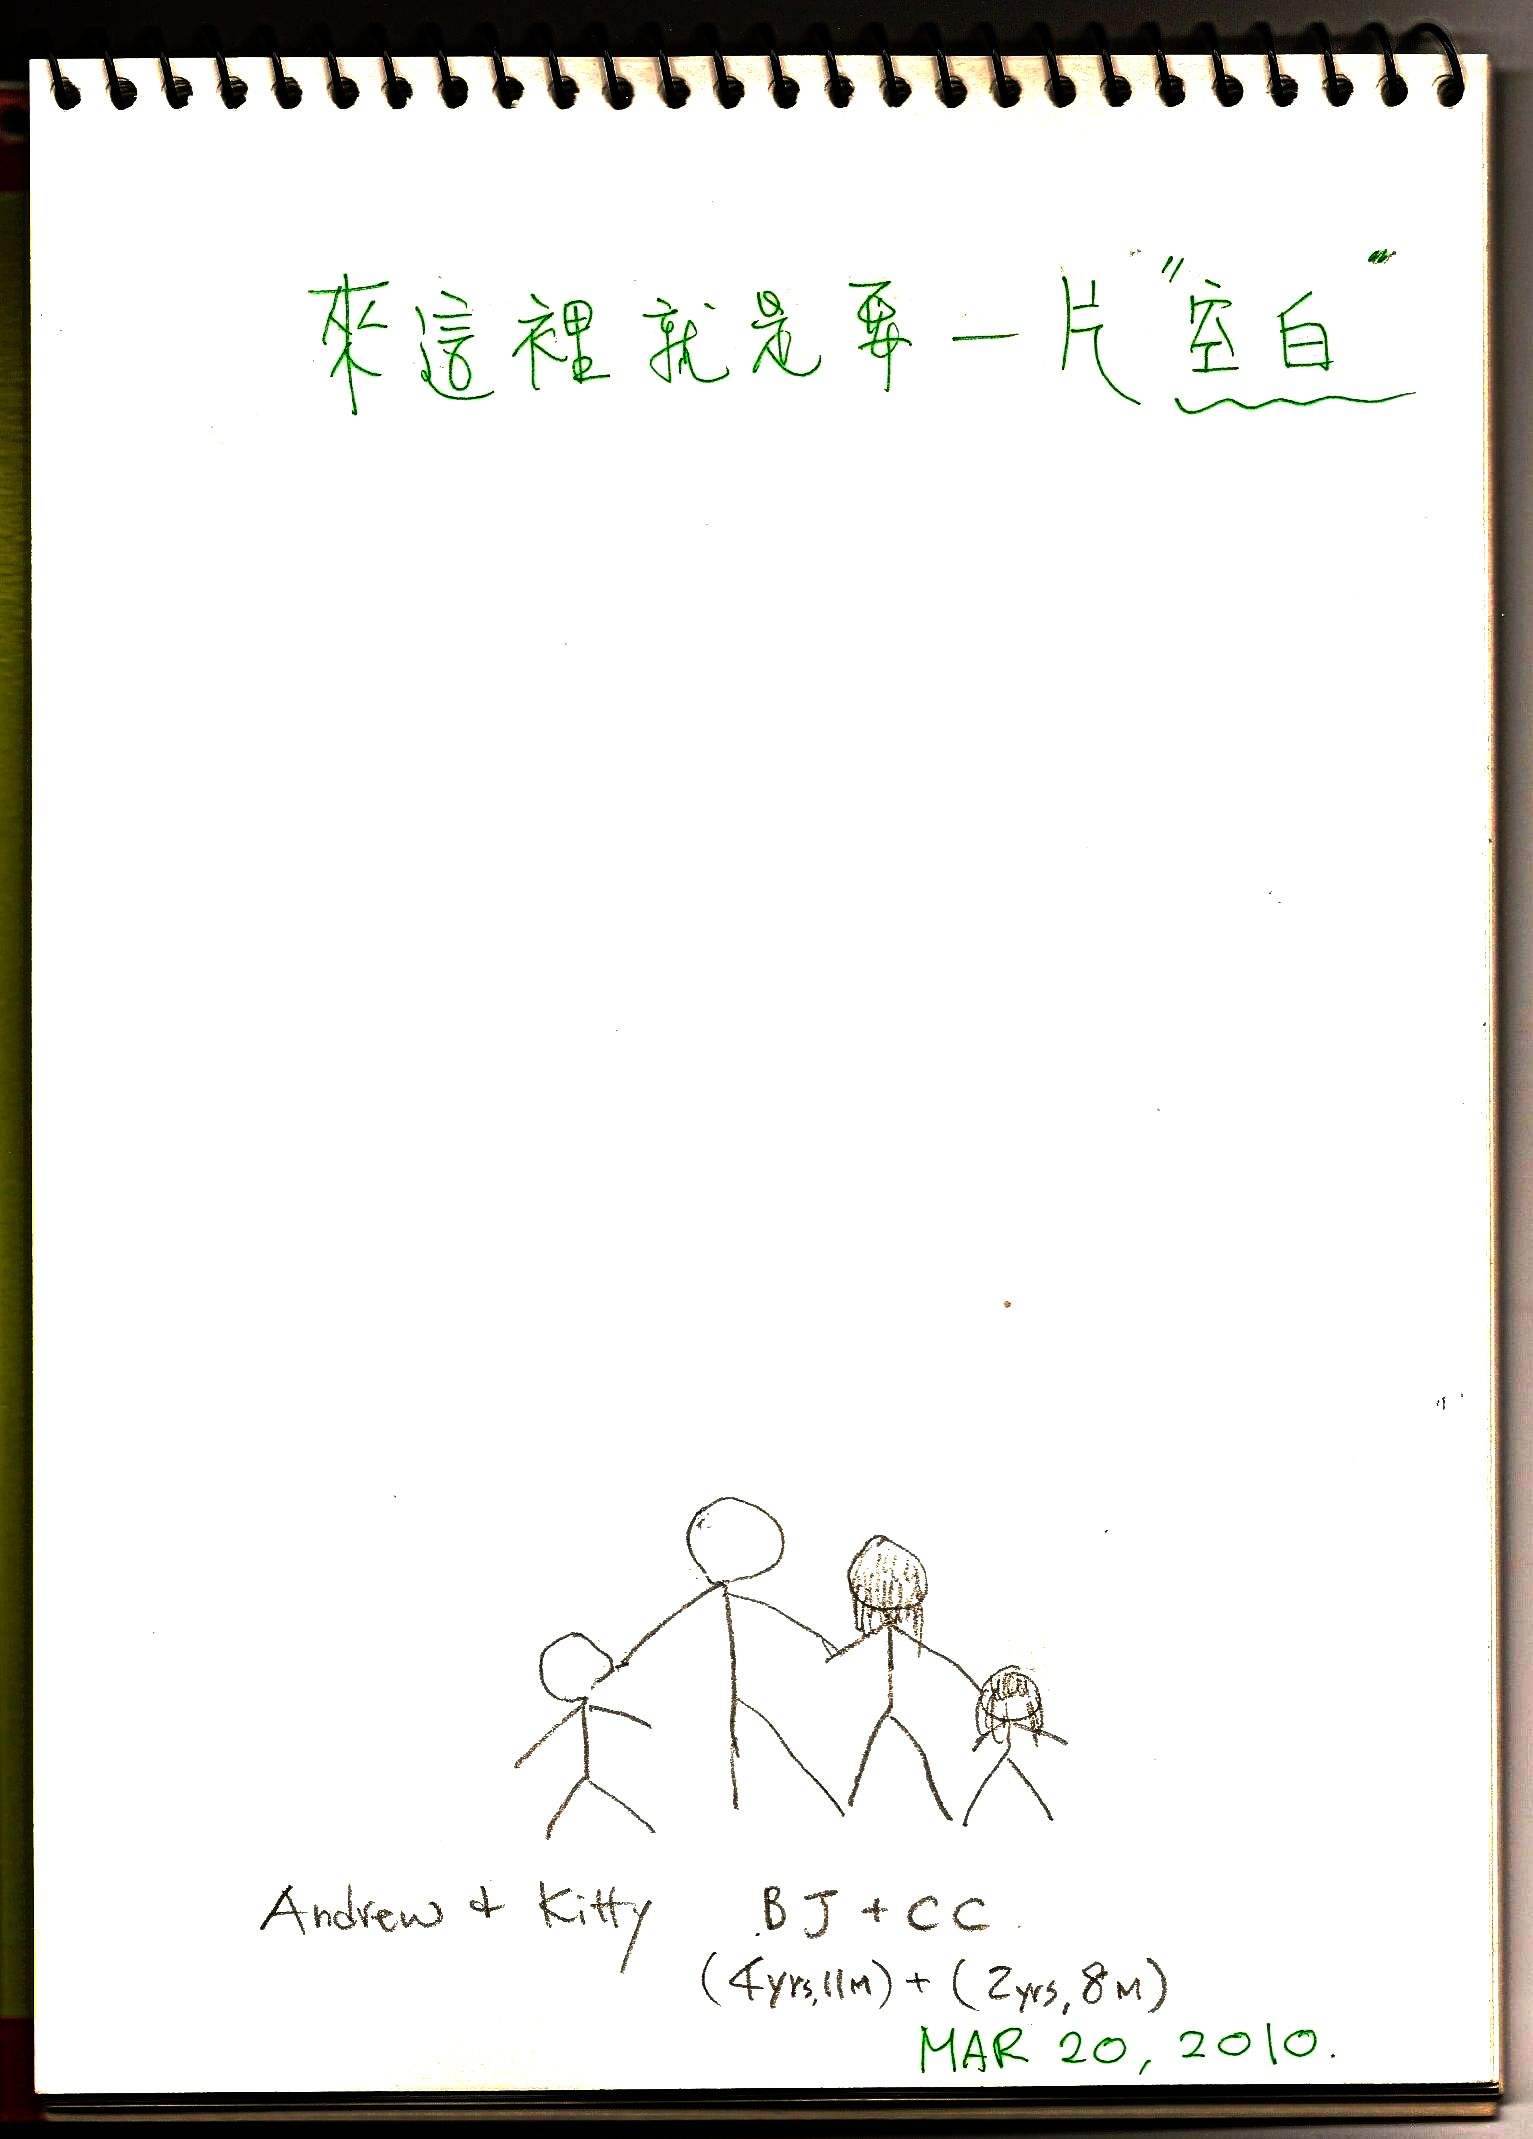 來這裡就是要一片"空白"
Andrew & Kitty BJ + CC
(4yrs, 11M) + (2yrs, 8M)
MAR 20, 2010.